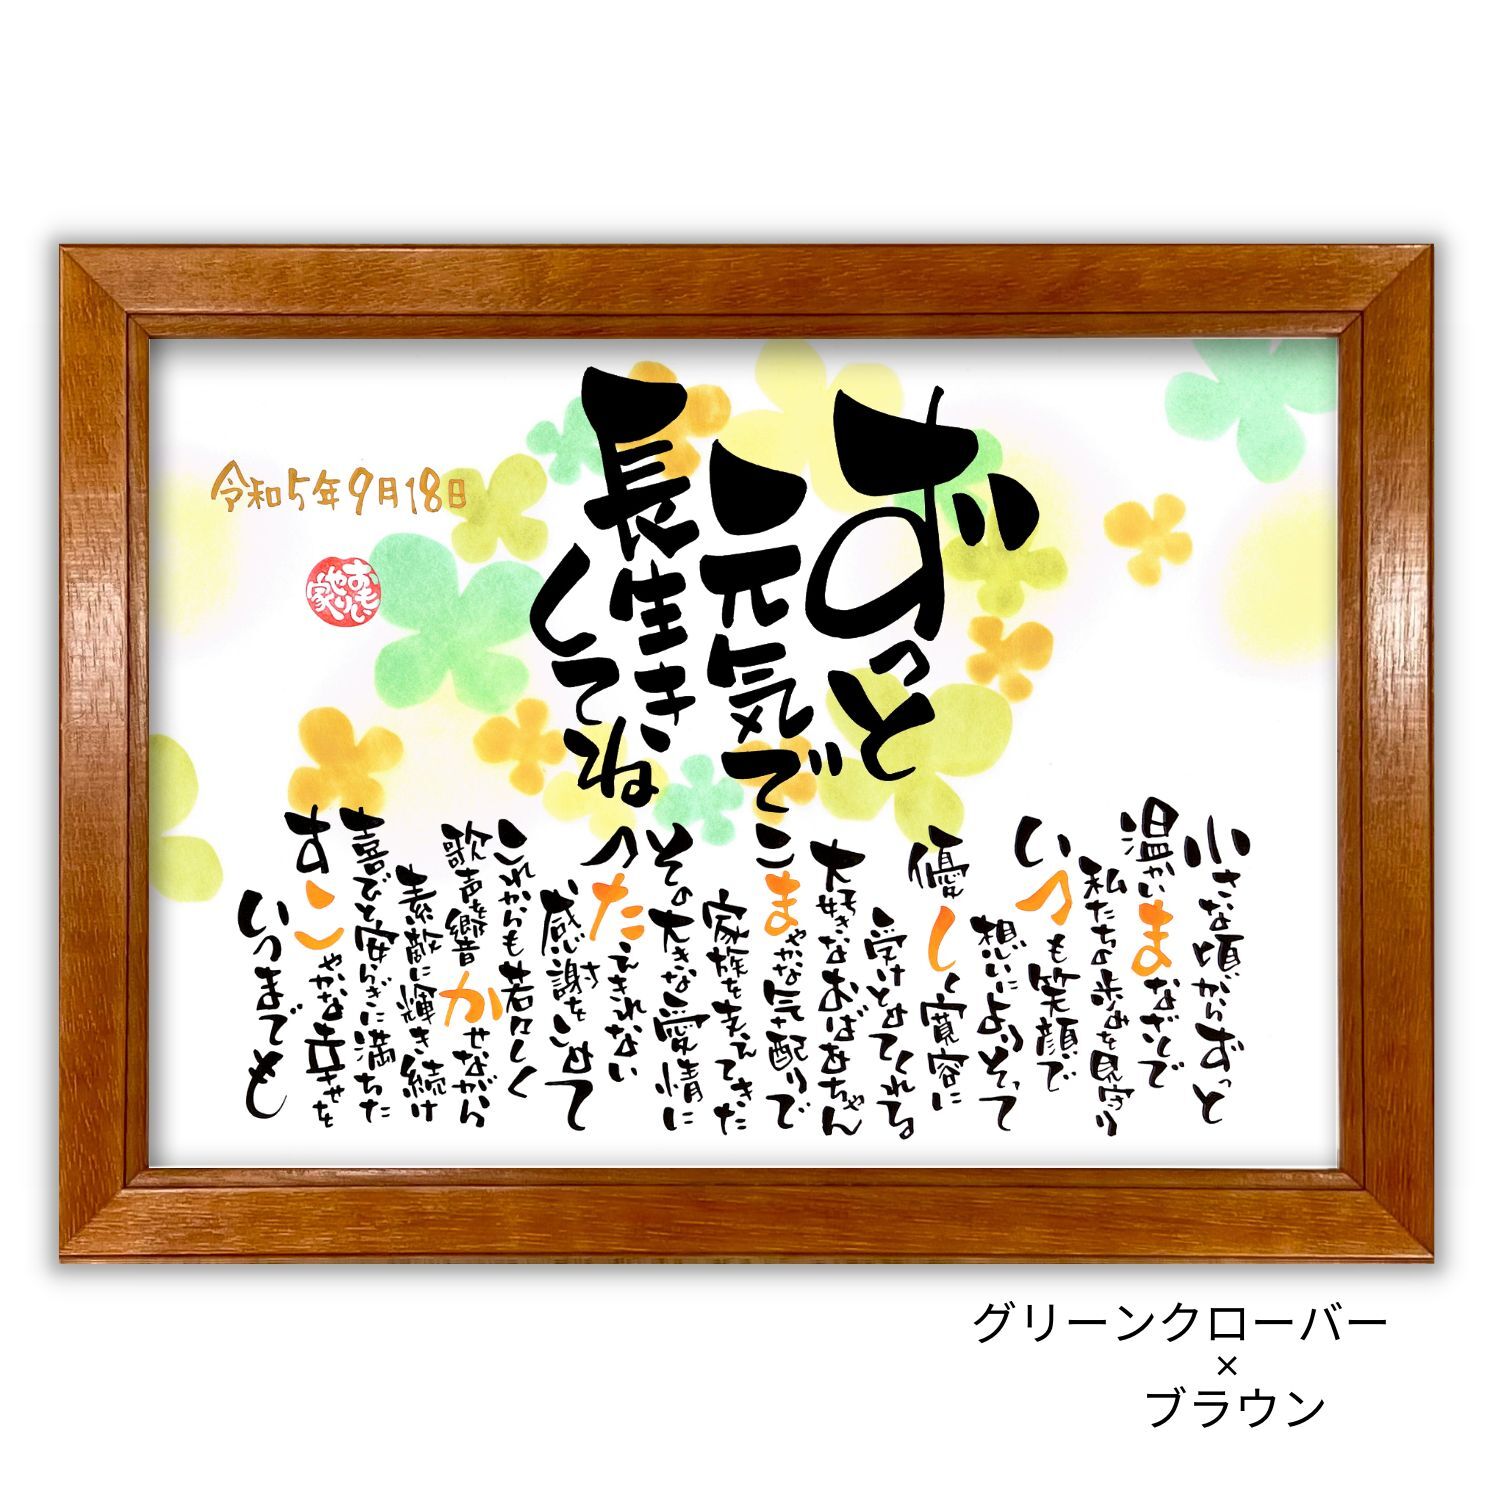 ずっと
元気で
長生き
してね
小さな頃からずっと
温かいまなざしで
私たちの歩みを見守り
いつも笑顔で
想いによりそって
優しく寛容に
受けとめてくれる
大好きなおばあちゃん
こまやかな気配りで
家族を支えてきた
その大きな愛情に
つたえきれない
感謝をこめて
これからも若々しく
歌声を響かせながら
素敵に輝き続け
喜びと安らぎに満ちた
すこやかな幸せを
いつまでも
令和5年9月18日
おもい
やり
家
グリーンクローバー
×
ブラウン